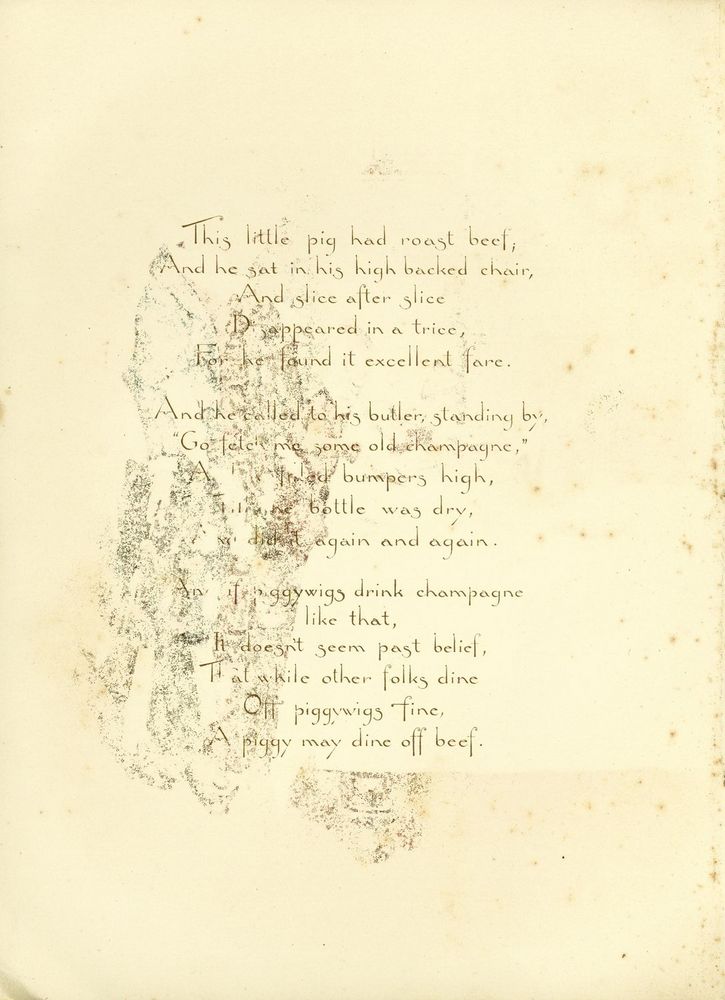 This little pig had roast beef;
And he sat in his high backed chair,
And slice after slice
Disappeared in a trice,
For he found it excellent fare.
And he called to his butler, standing by,
"Go fetch me some old champagne,"
filled bumpers high,
bottle was dry,
did it again and again.
And if piggywigs drink champagne
like that,
It doesn't seem past belief,
That while other folks dine
Off piggywigs fine,
A piggy may dine off beef.